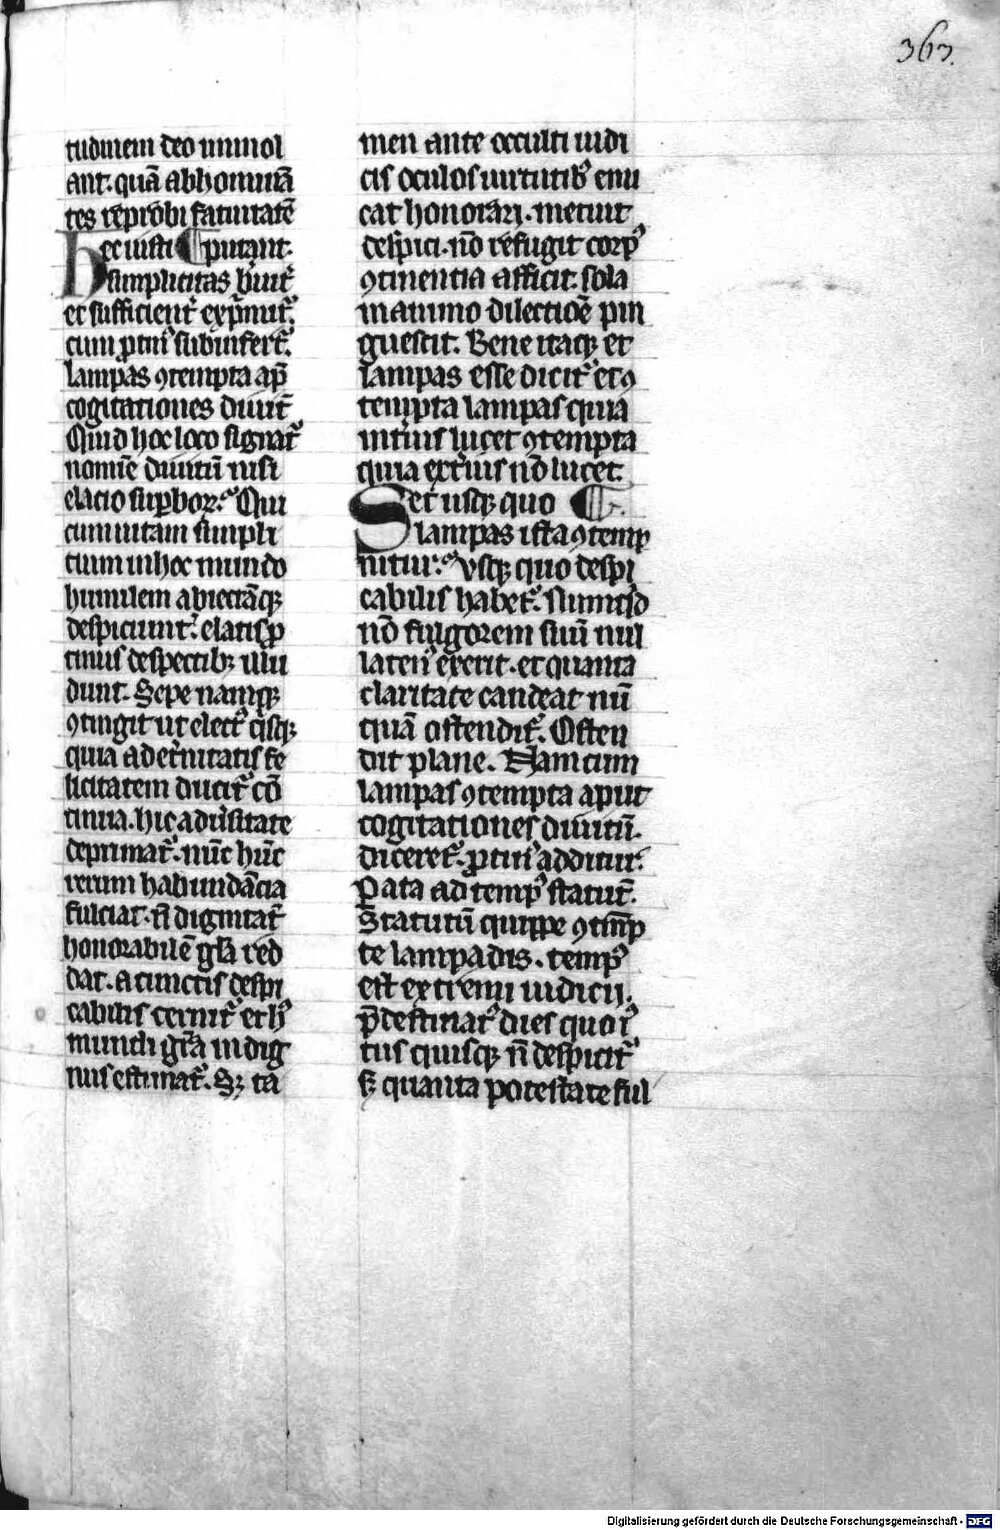 363.
tudinem deo immol
ant. quā abhominā
tes rep̄robi fatuitatē
hec iusti ¶ putant.
simplicitas huiꝰ
et sufficient̄ exp̄mit᷑.
cum ꝓtinꝰ subinfert᷑.
lampas ꝯtempta ap̄
cogitationes diuit̄
Quid hoc loco signat᷑
nomīe diuitū nisi
elacio suꝑboꝝ. Qui
cum uitam simpli
cium in hoc mundo
humilem abiectāqꝫ
despiciunt. elatis ꝓ
tinus despectibꝫ illu
dunt. Sepe namqꝫ
ꝯtingit ut electꝰ q̇sqꝫ
quia ad et̄nitatis fe
licitatem ducit᷑ cō
tinua. hic aduͥsitate
deprimat᷑. nūc hūc
rerum habundācia
fulciat. n̄ dignitat᷑
honorabilē gl̄a red
dat. a cunctis despi
cabilis cernit᷑ et hꝰ
mundi gr̄a indig
nus estimat᷑. Sꝫ ta
men ante occulti iudi
cis oculos uirtutibꝰ emi
cat honorari. metuit
despici. nō refugit corpꝰ
ꝯtinentia afficit. sola
in animo dilectiōe pin
guescit. Bene itaqꝫ et
lampas esse dicit᷑ et ꝯ
tempta lampas quia
intius lucet ꝯtempta
quia extͥius nō lucet.
Set usqꝫ quo ¶
lampas ista ꝯtemp
nitur. Vsqꝫ quo despi
cabilis habet᷑. Nunqͥd
nō fulgorem suū nul
latenꝰ exerit. et quanta
claritate candeat nū
quā ostendit᷑. Osten
dit plane. Nam cum
lampas ꝯtempta aput
cogitationes diuitū.
diceret᷑. ꝓtinꝰ additur.
Pata ad tempꝰ statut̄.
Statutū quippe ꝯtēp
te lampadis. tempꝰ
est extremi iudicij.
p̄destinatꝰ dies quo iꝰ
tus quisqꝫ n̄ despicit᷑
sꝫ quanta potestate ful
Digitalisierung gefördert durch die Deutsche Forschungsgemeinschaft - DFG